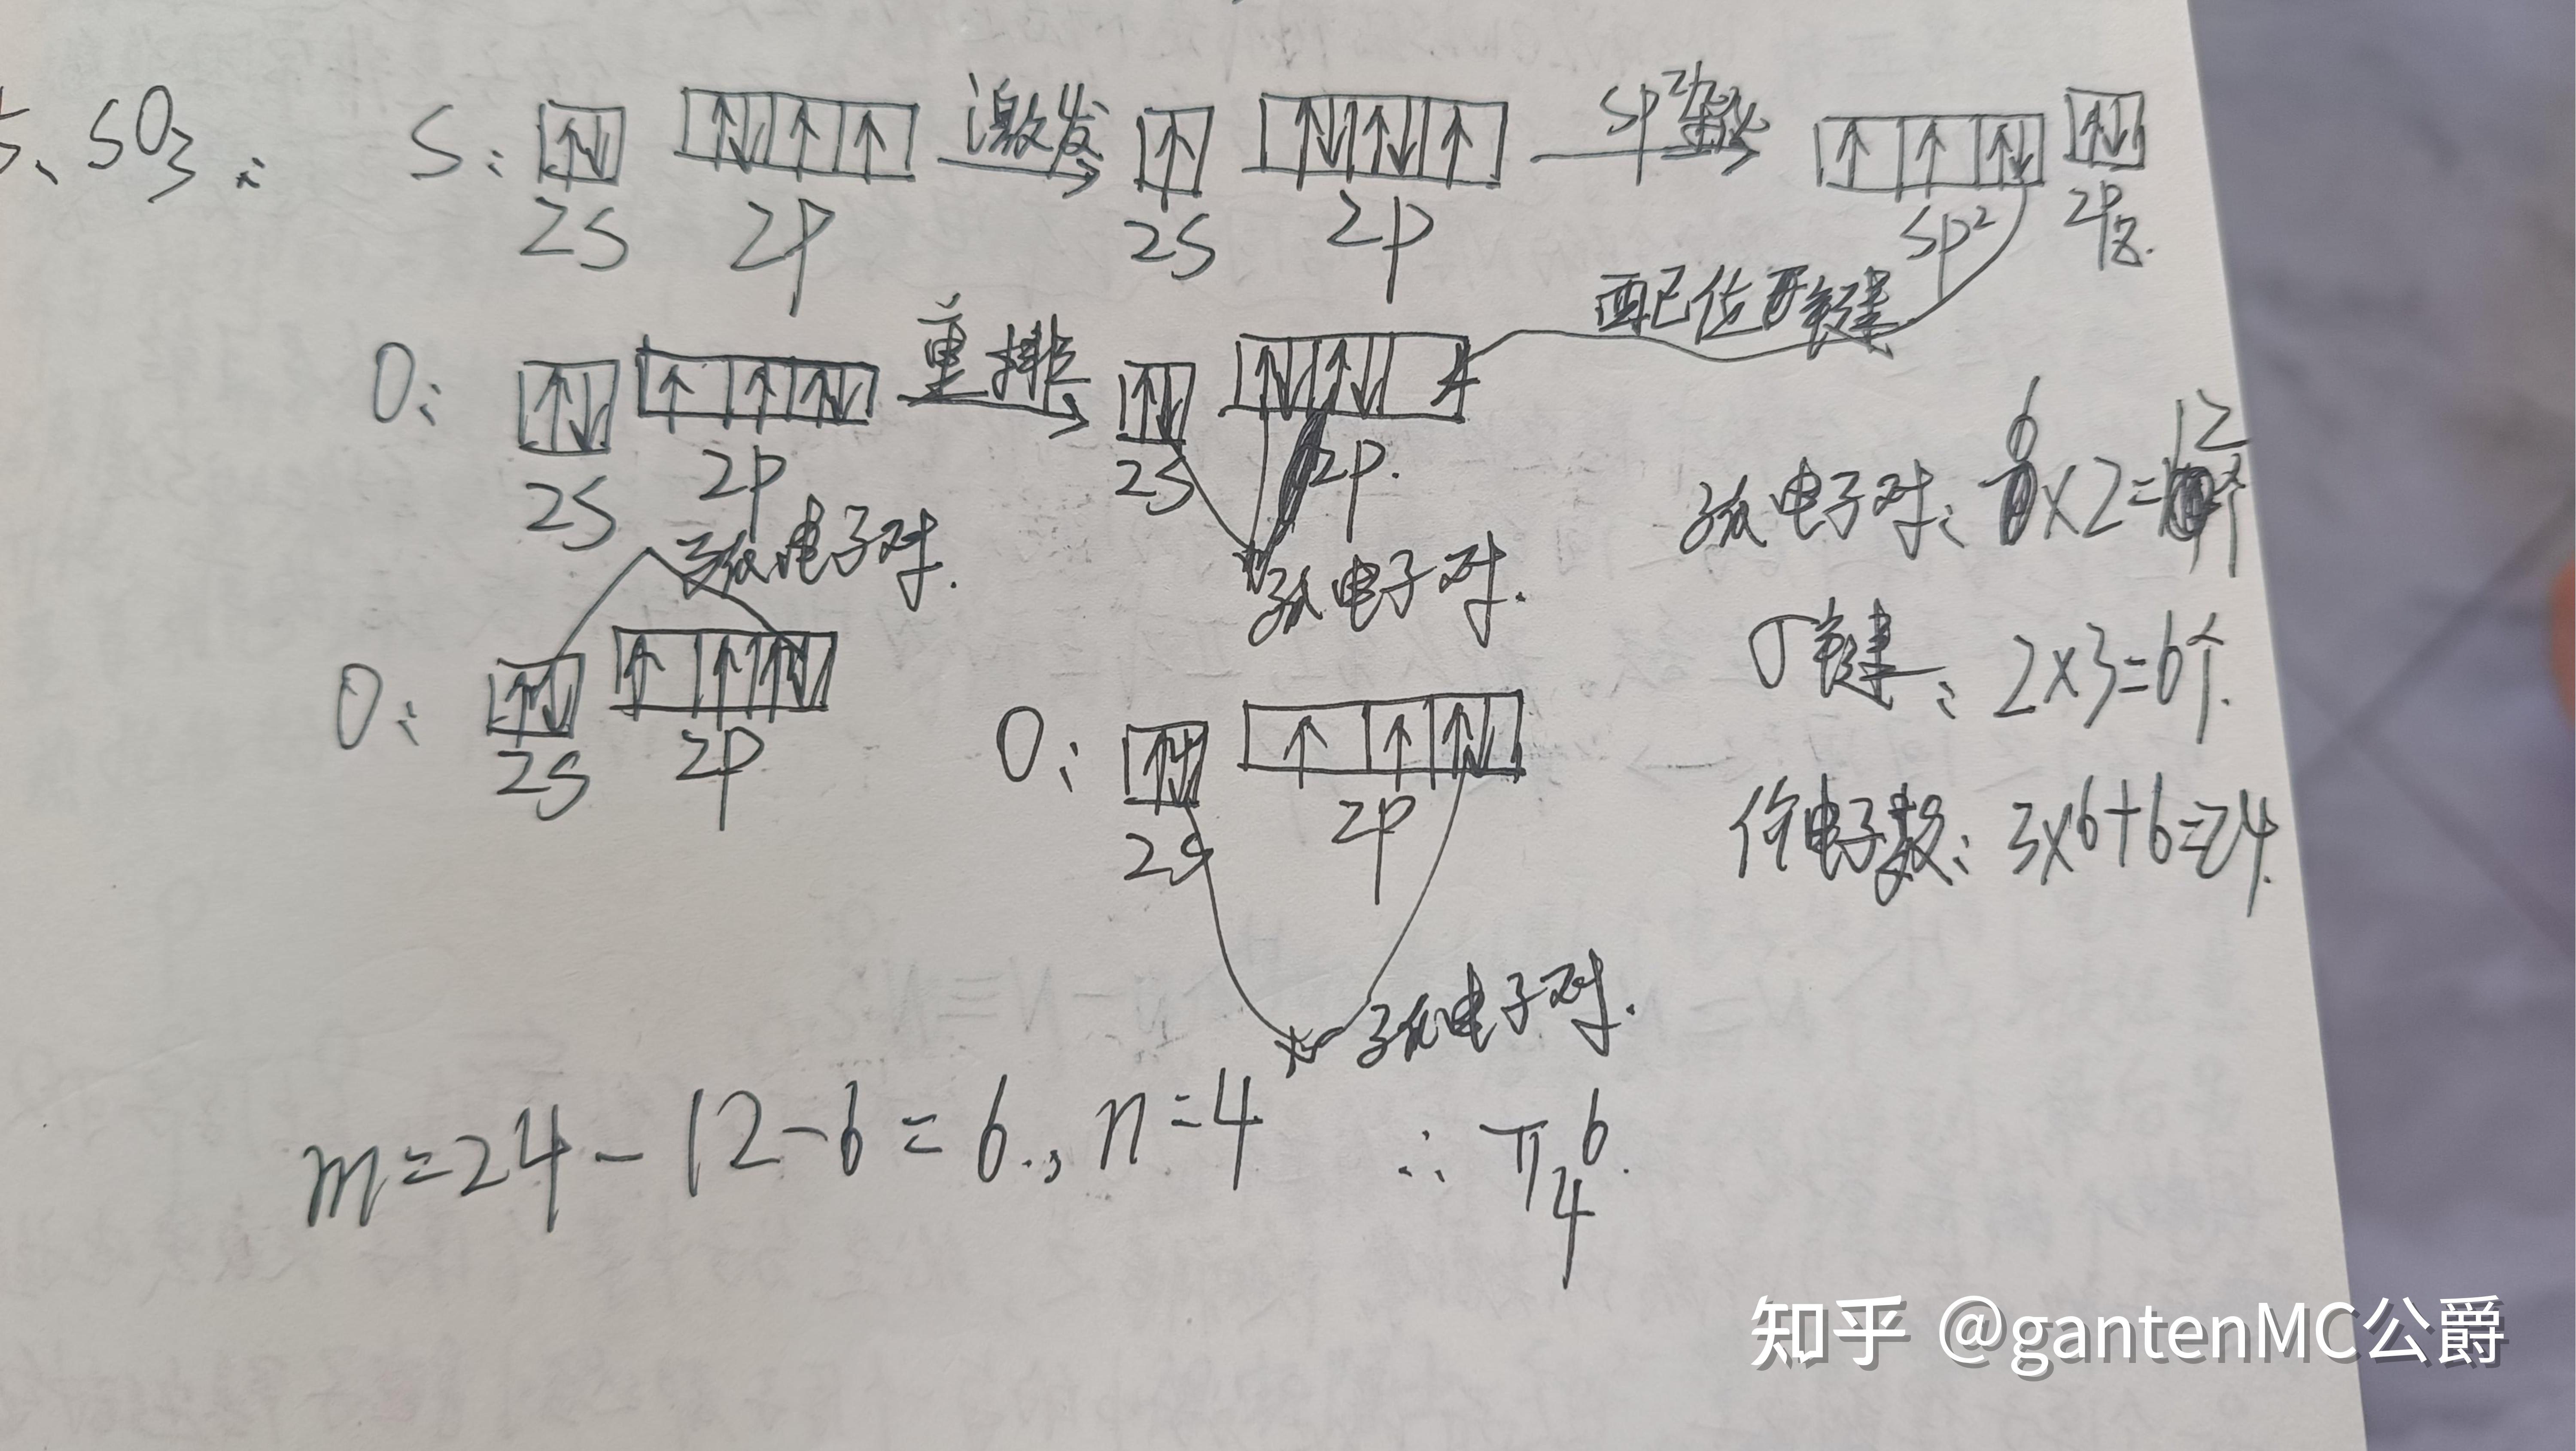 5、SO₃： S: ↑↓ ↑↓ ↑ ↑ 激发 ↑ ↑↓ ↑↓ ↑ sp²杂化 ↑ ↑ ↑↓ ↑↓
2s 2p 2s 2p sp² 2pz.
配位键
O: ↑↓ ↑ ↑ ↑↓ 重排 ↑↓ ↑↓ ↑↓
2s 2p 2s 2p.
孤电子对. 孤电子对.
孤电子对: 6×2=12个
O: ↑↓ ↑ ↑ ↑↓ O: ↑↓ ↑ ↑ ↑↓
2s 2p 2s 2p
σ键: 2×3=6个.
价电子数: 3×6+6=24.
孤电子对.
m=24-12-6=6., n=4 ∴ π₄⁶.
知乎 @gantenMC公爵